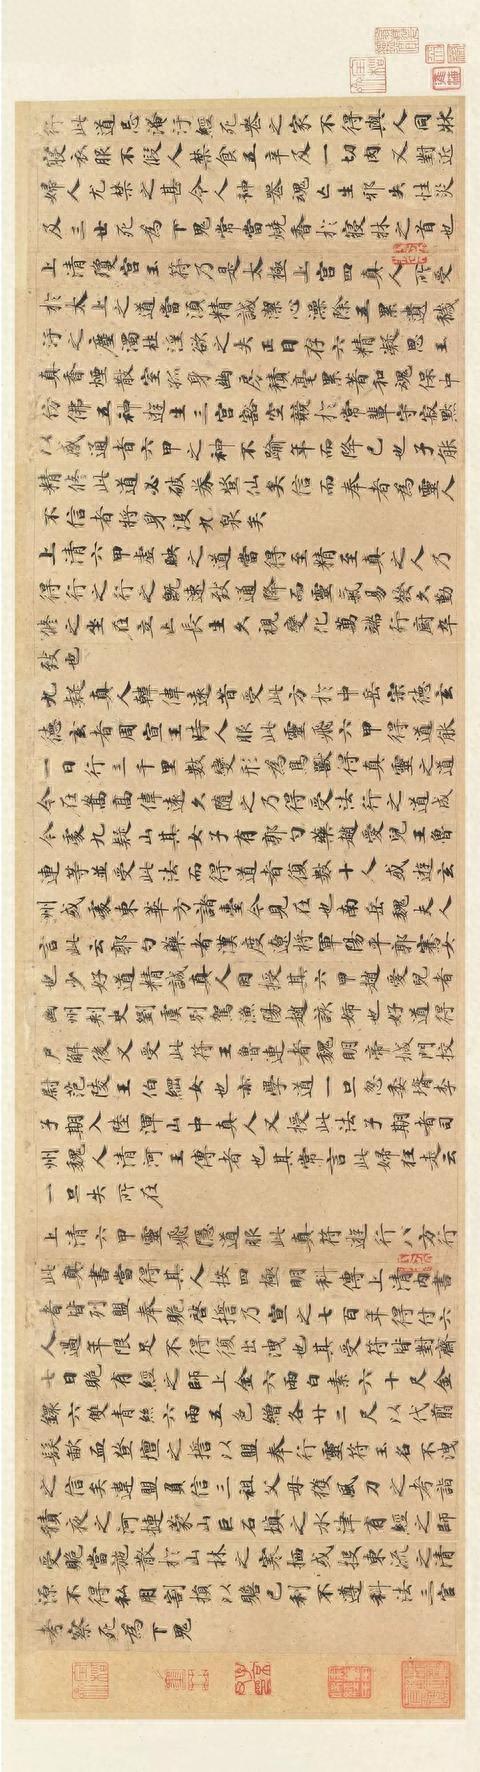 行此道忌淹汙經死喪之家不得與人同牀
寢衣服不假人禁食五辛及一切肉又對近
婦人尤禁之甚令人神喪魂亡生邪失性災
及三世死為下鬼常當燒香於寢牀之首也
上清瓊宮玉符乃是太極上宮四真人所受
於太上之道當須精誠潔心澡除五累遺穢
汙之塵濁杜淫欲之失正目存六精凝思玉
真香煙散室孤身幽房積毫累著和魂保中
仿佛五神遊生三宮豁空競於常輩守寂默
以感通者六甲之神不踰年而降已也子能
精修此道必破券登仙矣信而奉者為靈人
不信者將身沒九泉矣
上清六甲虛映之道當得至精至真之人乃
得行之行之既速致通降而靈氣易發久勤
修之坐在立亡長生久視變化萬端行廚卒
致也
九疑真人韓偉遠昔受此方於中岳宋德玄
德玄者周宣王時人服此靈飛六甲得道能
一日行三千里數變形為鳥獸得真靈之道
今在嵩高偉遠久隨之乃得受法行之道成
今處九疑山其女子有郭勺藥趙愛兒王魯
連等並受此法而得道者復數十人或遊玄
州或處東華方諸臺今見在也南岳魏夫人
言此云郭勺藥者漢度遼將軍陽平郭騫女
也少好道精誠真人因授其六甲趙愛兒者
幽州刺史劉虞別駕漁陽趙該姊也好道得
尸解後又受此符王魯連者魏明帝城門校
尉范陵王伯綱女也亦學道一旦忽委壻李
子期入陸渾山中真人又授此法子期者司
州魏人清河王傳者也其常言此婦狂走云
一旦失所在
上清六甲靈飛隱道服此真符遊行八方行
此真書當得其人按四極明科傳上清內書
者皆列盟奉跪啓誓乃宣之七百年得付六
人過年限足不得復出洩也其受符皆對齋
七日跪有經之師上金六兩白素六十尺金
鐶六雙青絲六兩五色繒各廿二尺以代翦
髮歃血登壇之誓以盟奉行靈符玉名不洩
之信矣違盟負信三祖父母獲風刀之考詣
積夜之河搪蒙山巨石填之水津有經之師
受跪當施散於山林之寒棲或投東流之清
源不得私用割損以贍己利不遵科法三官
考察死為下鬼